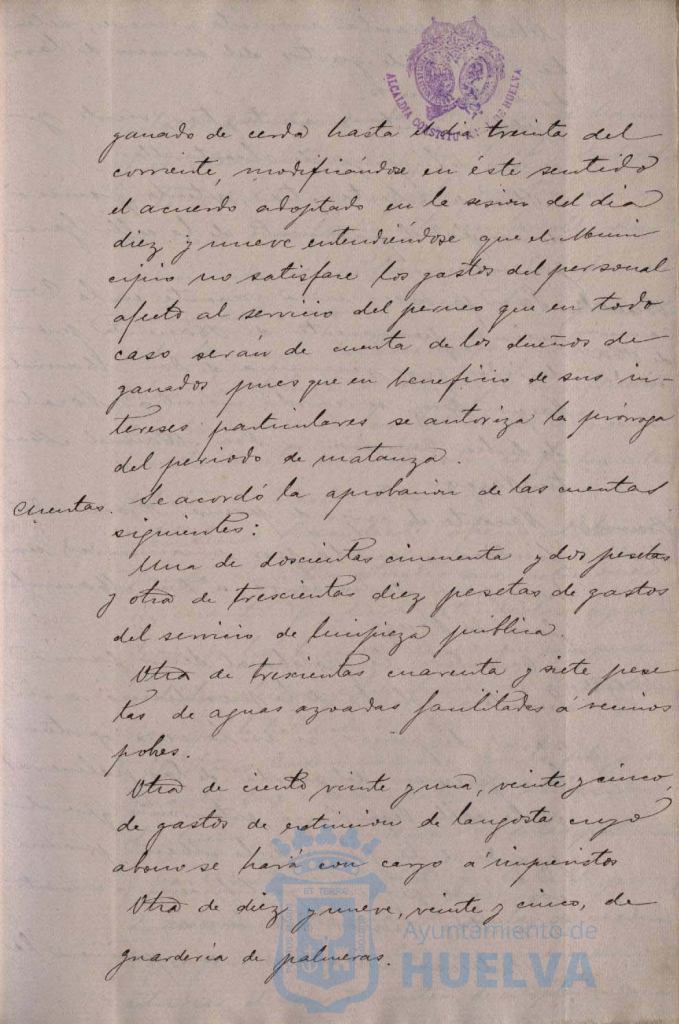 ALCALDIA CONSTITU HUELVA
ganado de cerda hasta el dia treinta del
corriente, modificándose en éste sentido
el acuerdo adoptado en la sesion del dia
diez y nueve entendiéndose que el Muni
cipio no satisface los gastos del personal
afecto al servicio del perneo que en todo
caso serán de cuenta de los dueños de
ganados pues que en beneficio de sus in-
tereses particulares se autoriza la prórroga
del periodo de matanza.
Cuentas. Se acordó la aprobacion de las cuentas
siguientes:
Una de doscientas cincuenta y dos pesetas
y otra de trescientas diez pesetas de gastos
del servicio de limpieza pública.
Otra de trescientas cuarenta y siete pese
tas de aguas azoadas facilitadas á vecinos
pobres.
Otra de ciento veinte y una, veinte y cinco,
de gastos de extincion de langosta cuyo
abono se hará con cargo á imprevistos
Otra de diez y nueve, veinte y cinco, de
guarderia de palmeras.
Ayuntamiento de
HUELVA